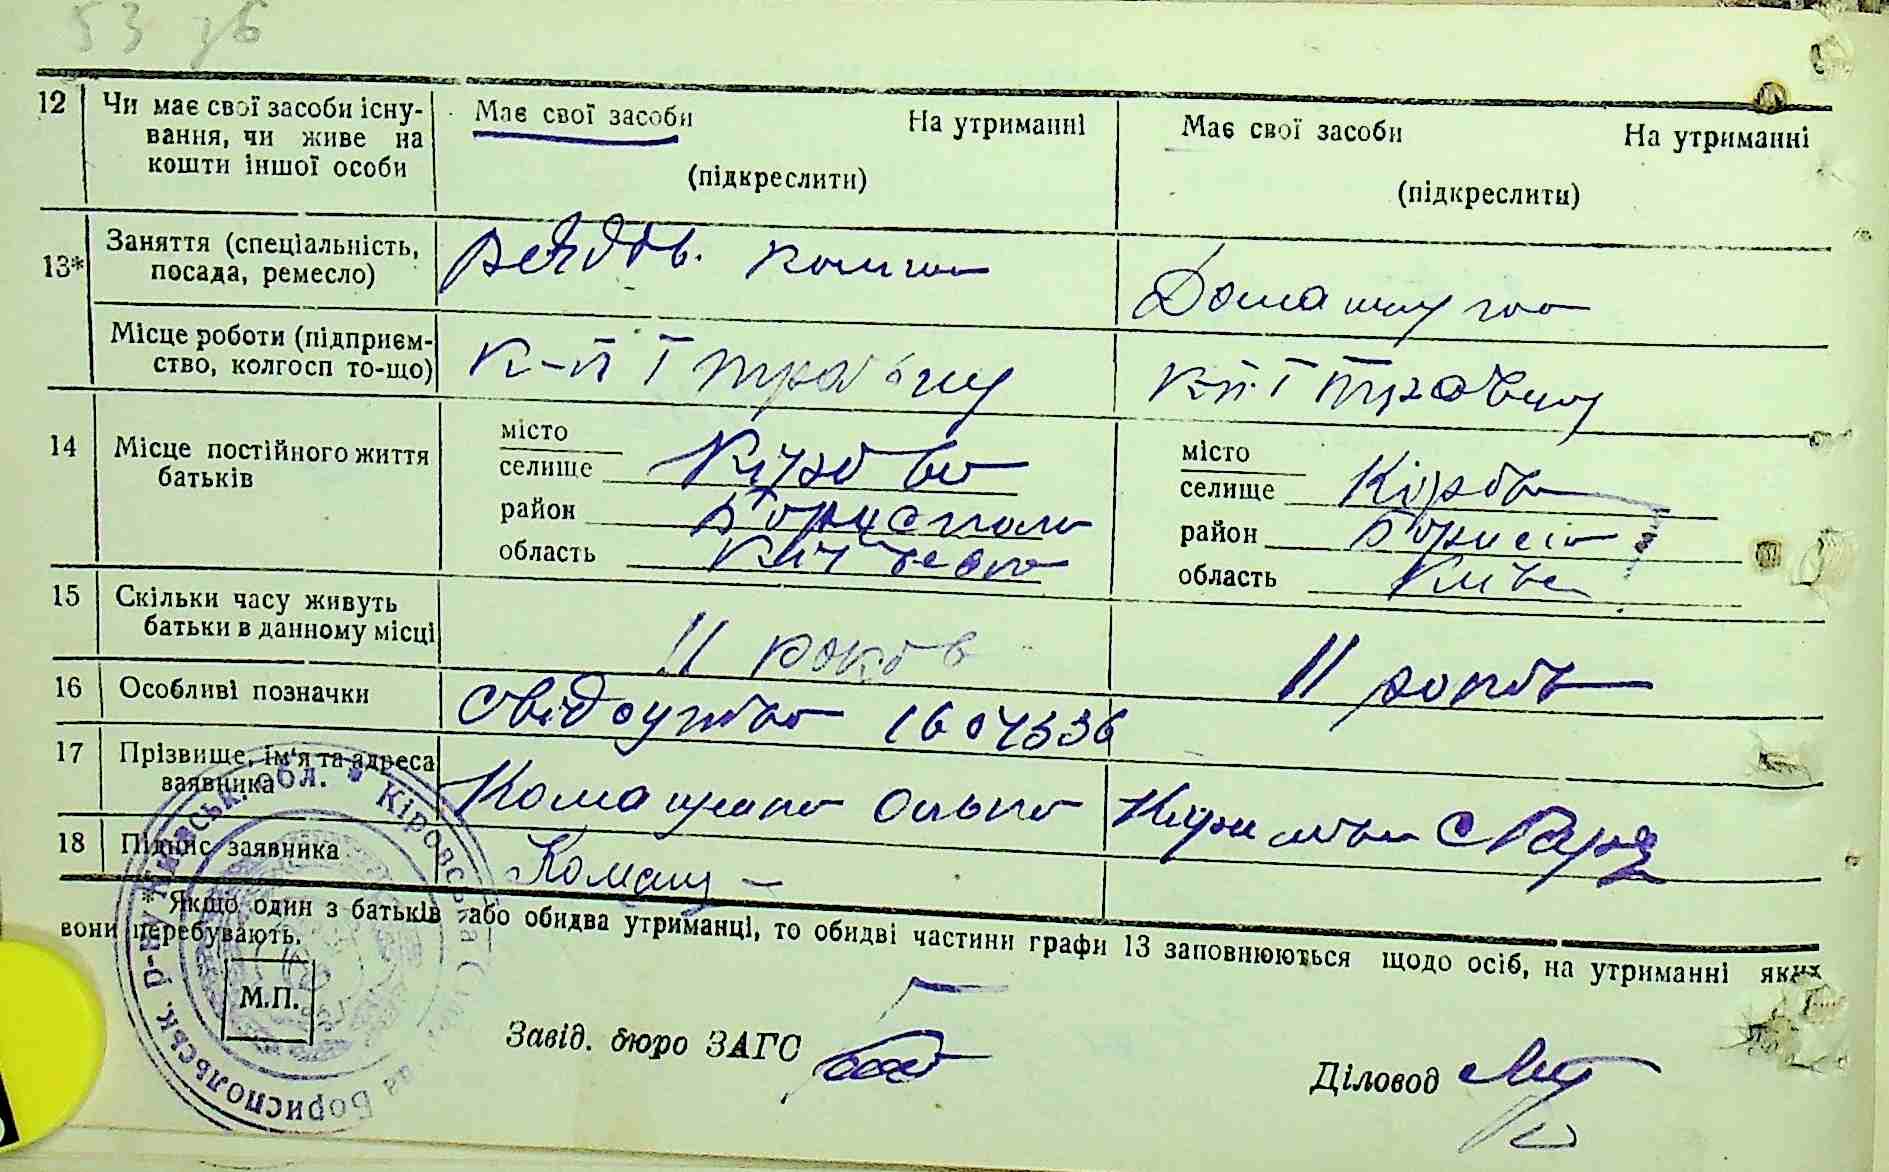 53 зб
12 Чи має свої засоби існу-
вання, чи живе на
кошти іншої особи
Має свої засоби На утриманні
(підкреслити)
Має свої засоби На утриманні
(підкреслити)
13* Заняття (спеціальність,
посада, ремесло)
Місце роботи (підприєм-
ство, колгосп то-що)
к-п 1 травну
к-п 1 травну
14 Місце постійного життя
батьків
місто
селище Кірово
район Бориспол
область Київська
місто
селище Кірово
район Борисп
область Київ
15 Скільки часу живуть
батьки в данному місці
11 років
11 років
16 Особливі позначки
свідоцтво 1604336
17 Прізвище, ім'я та адреса
заявника
18 Підпис заявника
* Якщо один з батьків або обидва утриманці, то обидві частини графи 13 заповнюються щодо осіб, на утриманні яких
вони перебувають.
М.П.
Завід. бюро ЗАГС
Діловод
Бориспольськ. р-ну Київськ. обл. * Кіровська